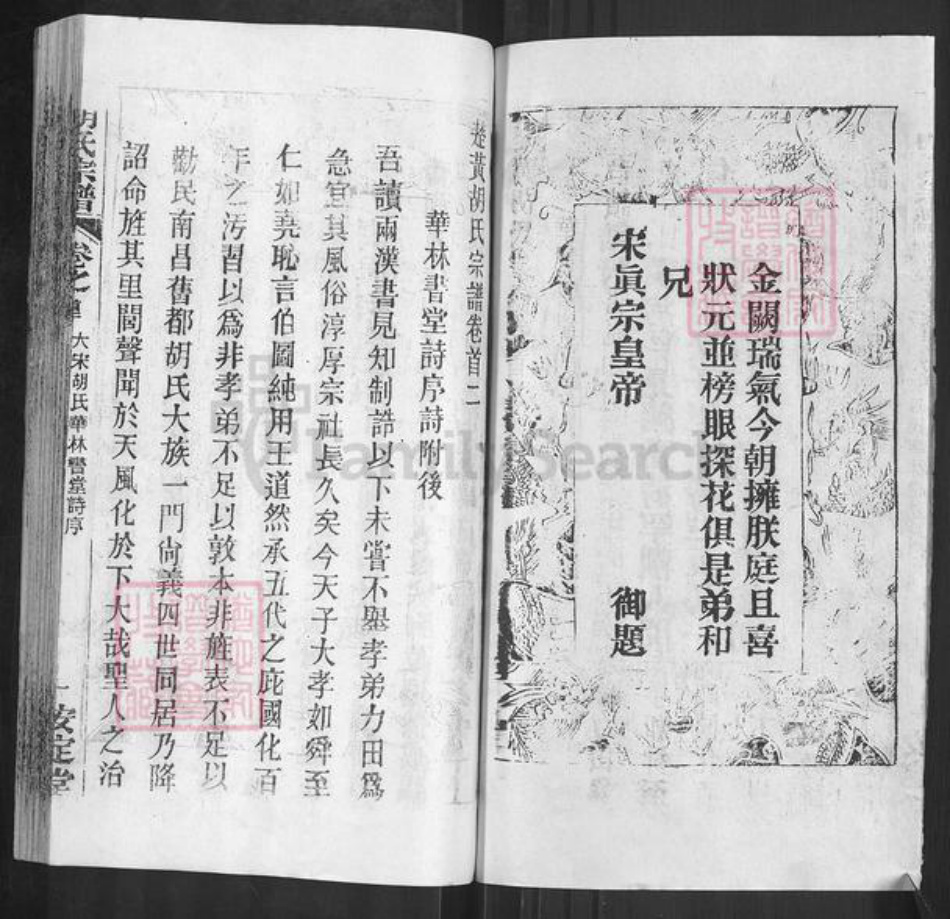 金闕瑞氣今朝擁朕庭且喜
狀元並榜眼探花俱是弟和
兄
宋眞宗皇帝 御題
楚黃胡氏宗譜卷首二
華林書堂詩序詩附後
吾讀兩漢書見知制誥以下未嘗不舉孝弟力田爲
急宜其風俗淳厚宗社長久矣今天子大孝如舜至
仁如堯恥言伯圖純用王道然承五代之庇國化百
年之汚習以爲非孝弟不足以敦本非旌表不足以
勸民南昌舊都胡氏大族一門尙義四世同居乃降
詔命旌其里閭聲聞於天風化於下大哉聖人之治
胡氏宗譜 卷之 大宋胡氏華林書堂詩序 一 安定堂
FamilySearch